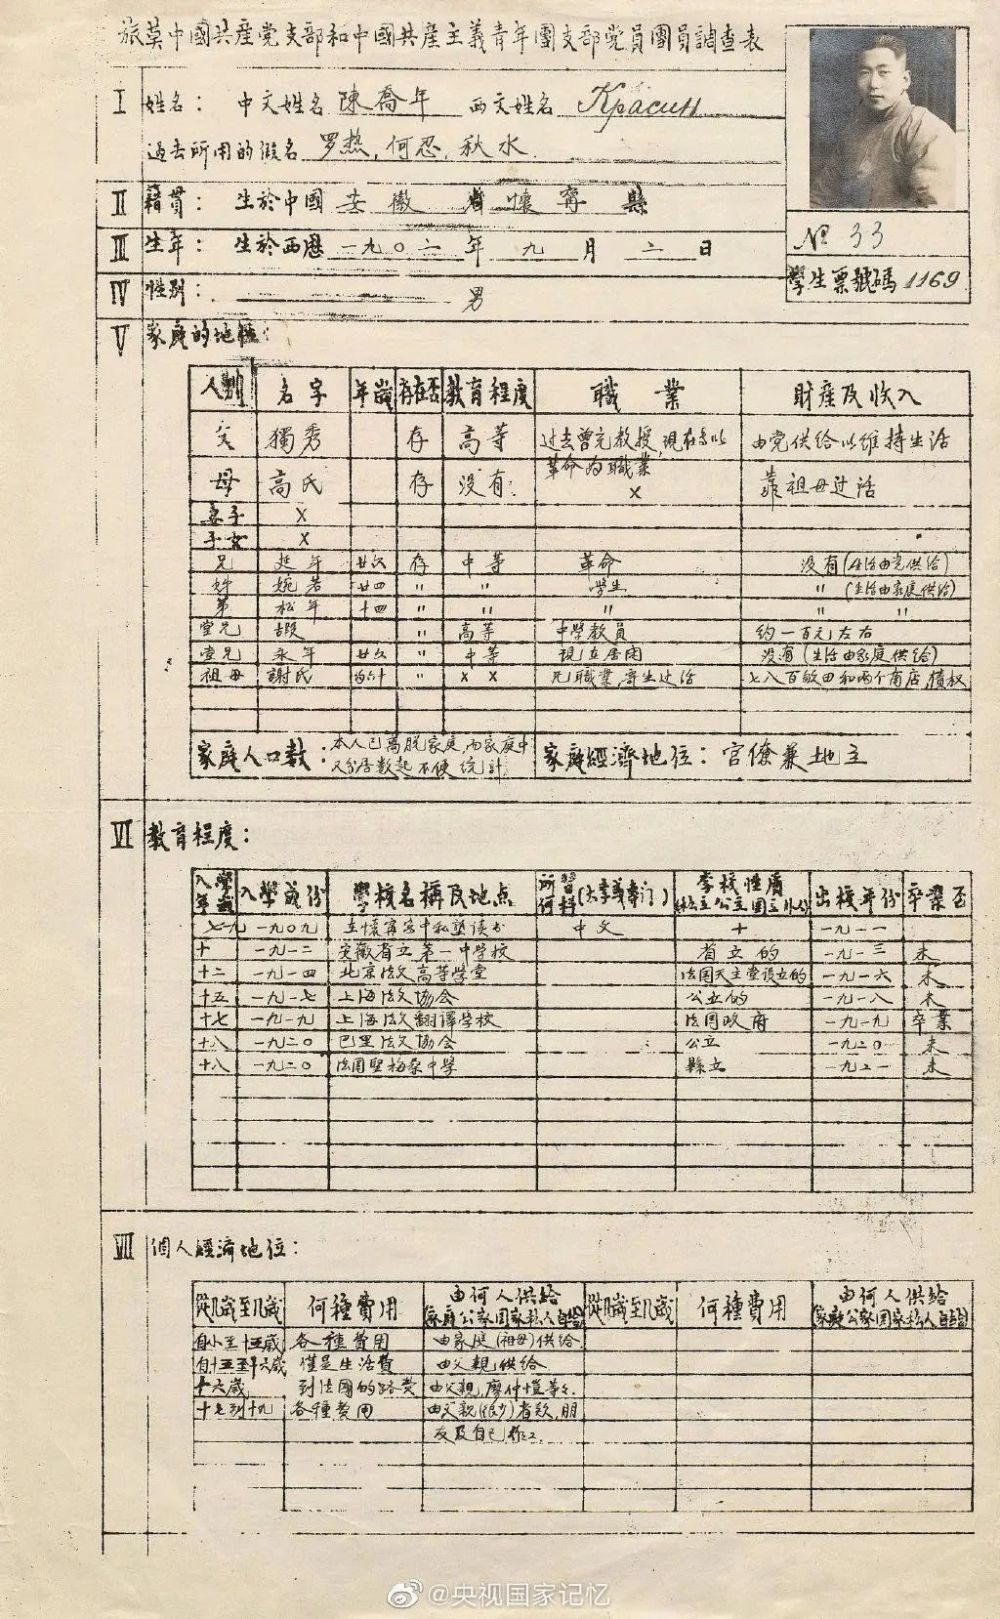 旅莫中國共産党支部和中國共産主義青年團支部党員團員調查表
I 姓名： 中文姓名 陳喬年 西文姓名 Красин
過去所用的假名 罗热，何忍，秋水
II 籍贯： 生於中國 安徽 省 懷寧 縣
III 生年： 生於西歷 一九〇二 年 九 月 二 日
№ 33
IV 性别： 男
學生票號碼 1169
V 家庭的地位：
人别 名字 年歲 存在否 教育程度 職業 財産及收入
父 獨秀 存 高等 过去曾充教授，現在专以革命为職業 由党供给以维持生活
母 高氏 存 没有 × 靠祖母过活
妻子 ×
子女 ×
兄 延年 廿六 存 中等 革命 没有（生活由党供给）
姊 婉若 廿四 〃 〃 學生 〃 （生活由家庭供给）
弟 松年 十四 〃 〃 〃 〃 〃
堂兄 遐 〃 高等 中學教員 约一百元左右
堂兄 永年 廿六 〃 中等 現在居閑 没有（生活由家庭供给）
祖母 謝氏 约六十 〃 × × 无職業，寄生过活 七八百畝田和两个商店，債权
家庭人口数： 本人已离脱家庭，而家庭中又分居数起不便统计 家庭經濟地位： 官僚兼地主
VI 教育程度：
入學年歲 入學年份 學校名稱及地点 所習何科（大學或專门） 李校性質（私立公立国立外人） 出校年份 卒業否
七 一九〇九 在懷寧家中私塾读书 中文 十 一九一一
十 一九一二 安徽省立第一中学校 省立的 一九一三 未
十二 一九一四 北京法文高等學堂 法國天主堂设立的 一九一六 未
十五 一九一七 上海法文協会 公立的 一九一八 未
十七 一九一九 上海法文翻譯学校 法国政府 一九一九 卒業
十八 一九二〇 巴里法文协会 公立 一九二〇 未
十八 一九二〇 法国聖梅桑中學 縣立 一九二一 未
VII 個人經濟地位：
從几歲至几歲 何種費用 由何人供給（家庭公家国家私人自給） 從几歲至几歲 何種費用 由何人供給（家庭公家国家私人自給）
自小至十五歲 各種費用 由家庭（祖母）供给
自十五至十六歲 僅是生活費 由父親供给
十六歲 到法國的路费 由父親，廖仲愷等
十七到十九 各種費用 由父親（很少）者款，朋
友及自己作工
@央视国家记忆